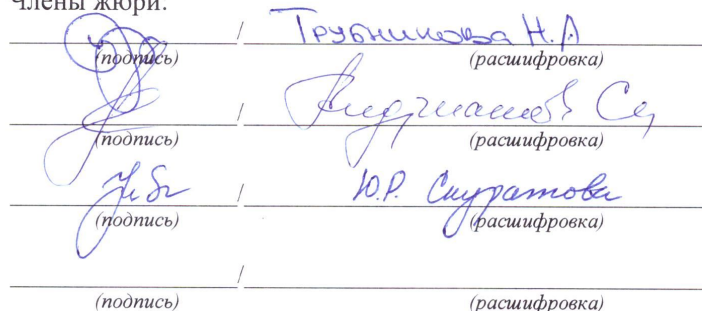 Члены жюри:
/ Трубникова Н.А
(подпись) (расшифровка)
/
(подпись) (расшифровка)
/ Ю.Р. Скуратова
(подпись) (расшифровка)
/
(подпись) (расшифровка)